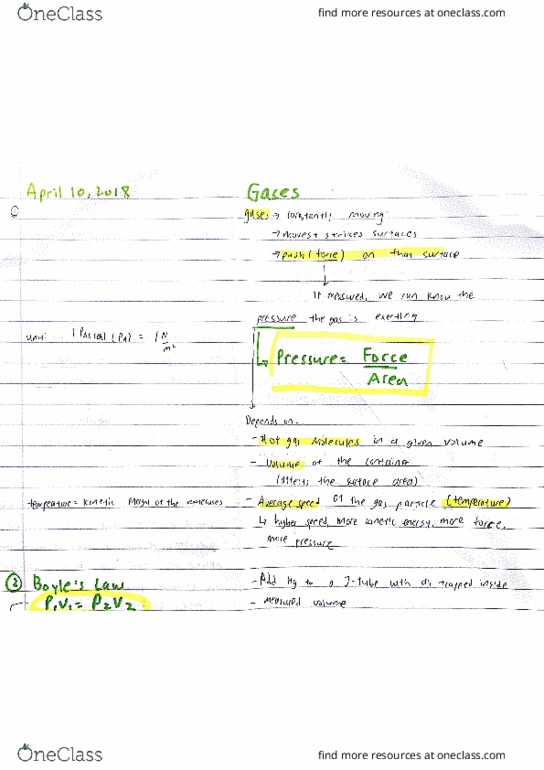 OneClass
find more resources at oneclass.com
April 10, 2018
Gases
gases → constantly moving
→ moves + strikes surfaces
→ push (force) on that surface
If measured, we can know the
pressure the gas is exerting
unit: 1 Pascal (Pa) = 1 N/m²
Pressure = Force
Area
Depends on:
- # of gas molecules in a given volume
- Volume of the container
(affects the surface area)
temperature = kinetic energy of the molecules
- Average speed of the gas particle (temperature)
↳ higher speed, more kinetic energy, more force,
more pressure
② Boyle's Law
P₁V₁ = P₂V₂
- Add Hg to a J-tube with air trapped inside
- measured volume
OneClass
find more resources at oneclass.com